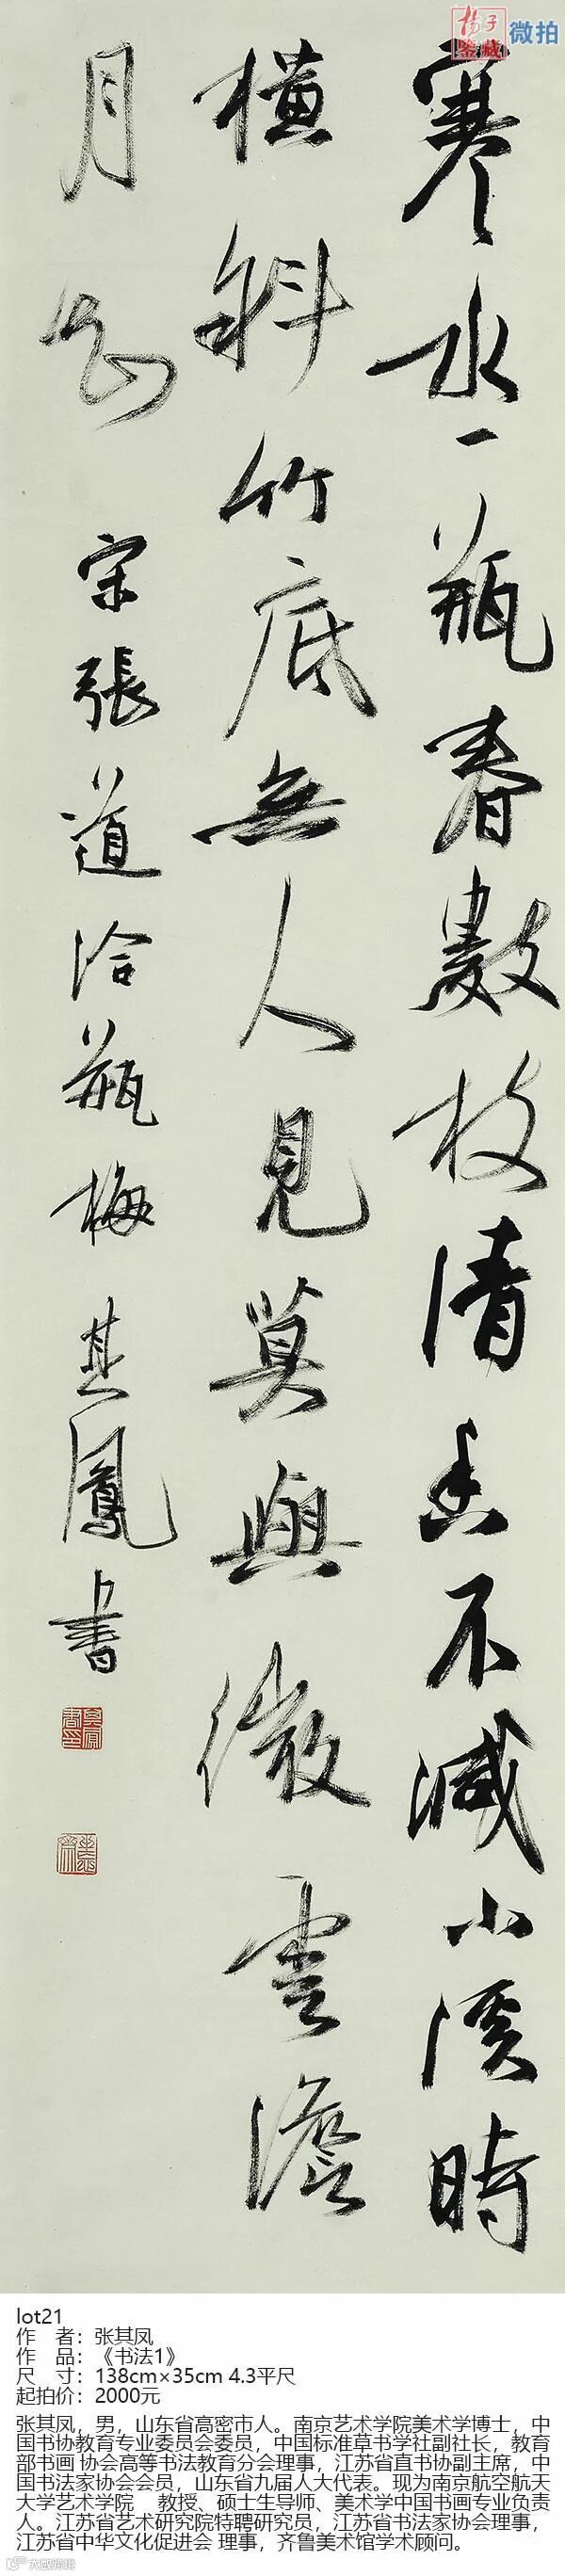 扬子鉴藏 微拍
寒水一瓶春數枝清香不減小溪時
橫斜竹底無人見莫與微雲澹
月知
宋張道洽瓶梅其鳳書
lot21
作 者：张其凤
作 品：《书法1》
尺 寸：138cm×35cm 4.3平尺
起拍价：2000元
张其凤，男，山东省高密市人。南京艺术学院美术学博士，中
国书协教育专业委员会委员，中国标准草书学社副社长，教育
部书画 协会高等书法教育分会理事，江苏省直书协副主席，中
国书法家协会会员，山东省九届人大代表。现为南京航空航天
大学艺术学院 教授、硕士生导师、美术学中国书画专业负责
人。江苏省艺术研究院特聘研究员，江苏省书法家协会理事，
江苏省中华文化促进会 理事，齐鲁美术馆学术顾问。